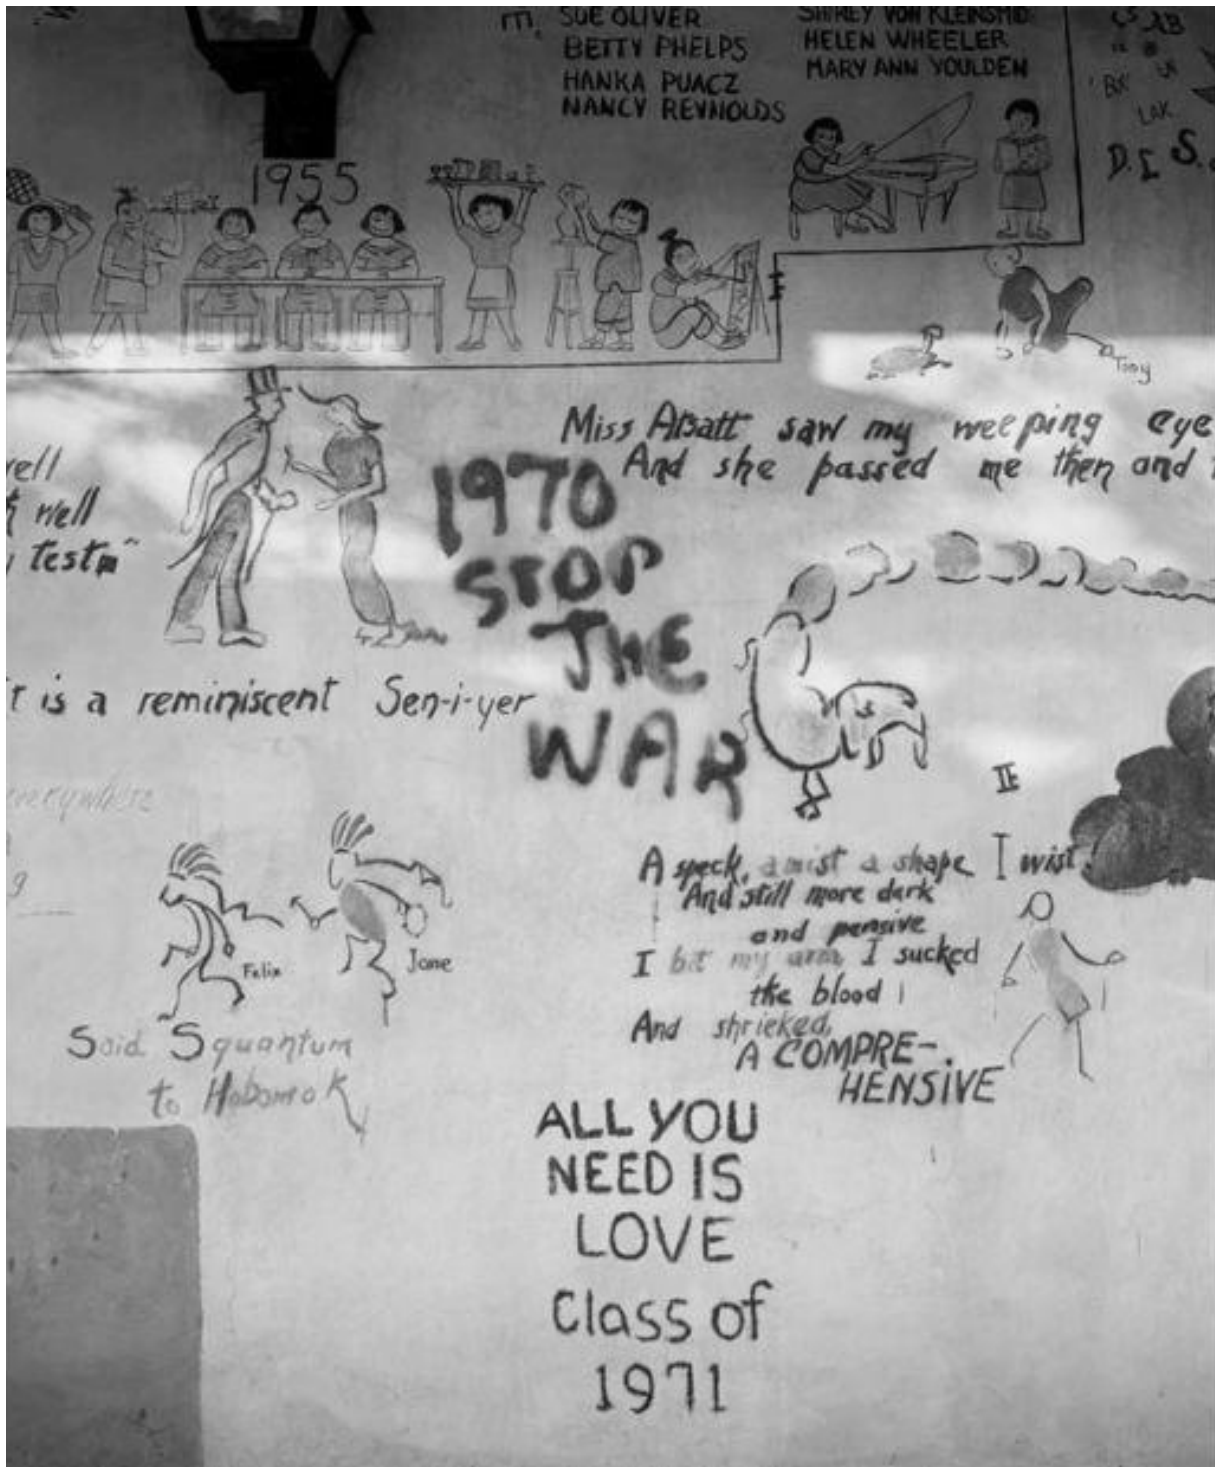 SUE OLIVER
BETTY PHELPS
HANKA PUACZ
NANCY REYNOLDS
SHIRLEY VON KLEINSMID
HELEN WHEELER
MARY ANN YOULDEN
AB
LAK
D. I. S.
1955
I
Tony
Miss Abatt saw my weeping eye
And she passed me then and
well
well
test
1970
STOP
THE
WAR
is a reminiscent Sen-i-yer
everywhere
g
II
A speck, a mist a shape I wist!
And still more dark
and pensive
I bit my arm I sucked
the blood
And shrieked,
A COMPRE-
HENSIVE
Felix
Jane
Said Squantum
to Hobomok
ALL YOU
NEED IS
LOVE
Class of
1971